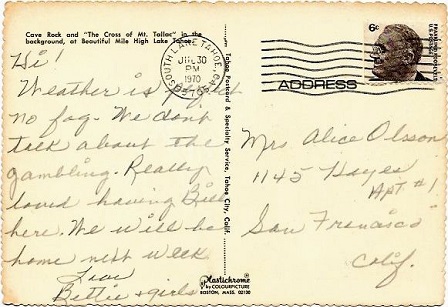 Cave Rock and "The Cross of Mt. Tallac" in the
background, at Beautiful Mile High Lake Tahoe.
Hi!
Weather is perfect
no fog. We don't
talk about the
gambling. Really
loved having Bill
here. We will be
home next week
Love
Bettie & girls
Tahoe Postcard & Specialty Service, Tahoe City, Calif.
Plastichrome®
by COLOURPICTURE
BOSTON, MASS. 02130
SOUTH LAKE TAHOE, CA
JUL 30
PM
1970
95705
6c
ADDRESS
Mrs Alice Olsson
1145 Hayes
Apt #1
San Francisco
Calif.